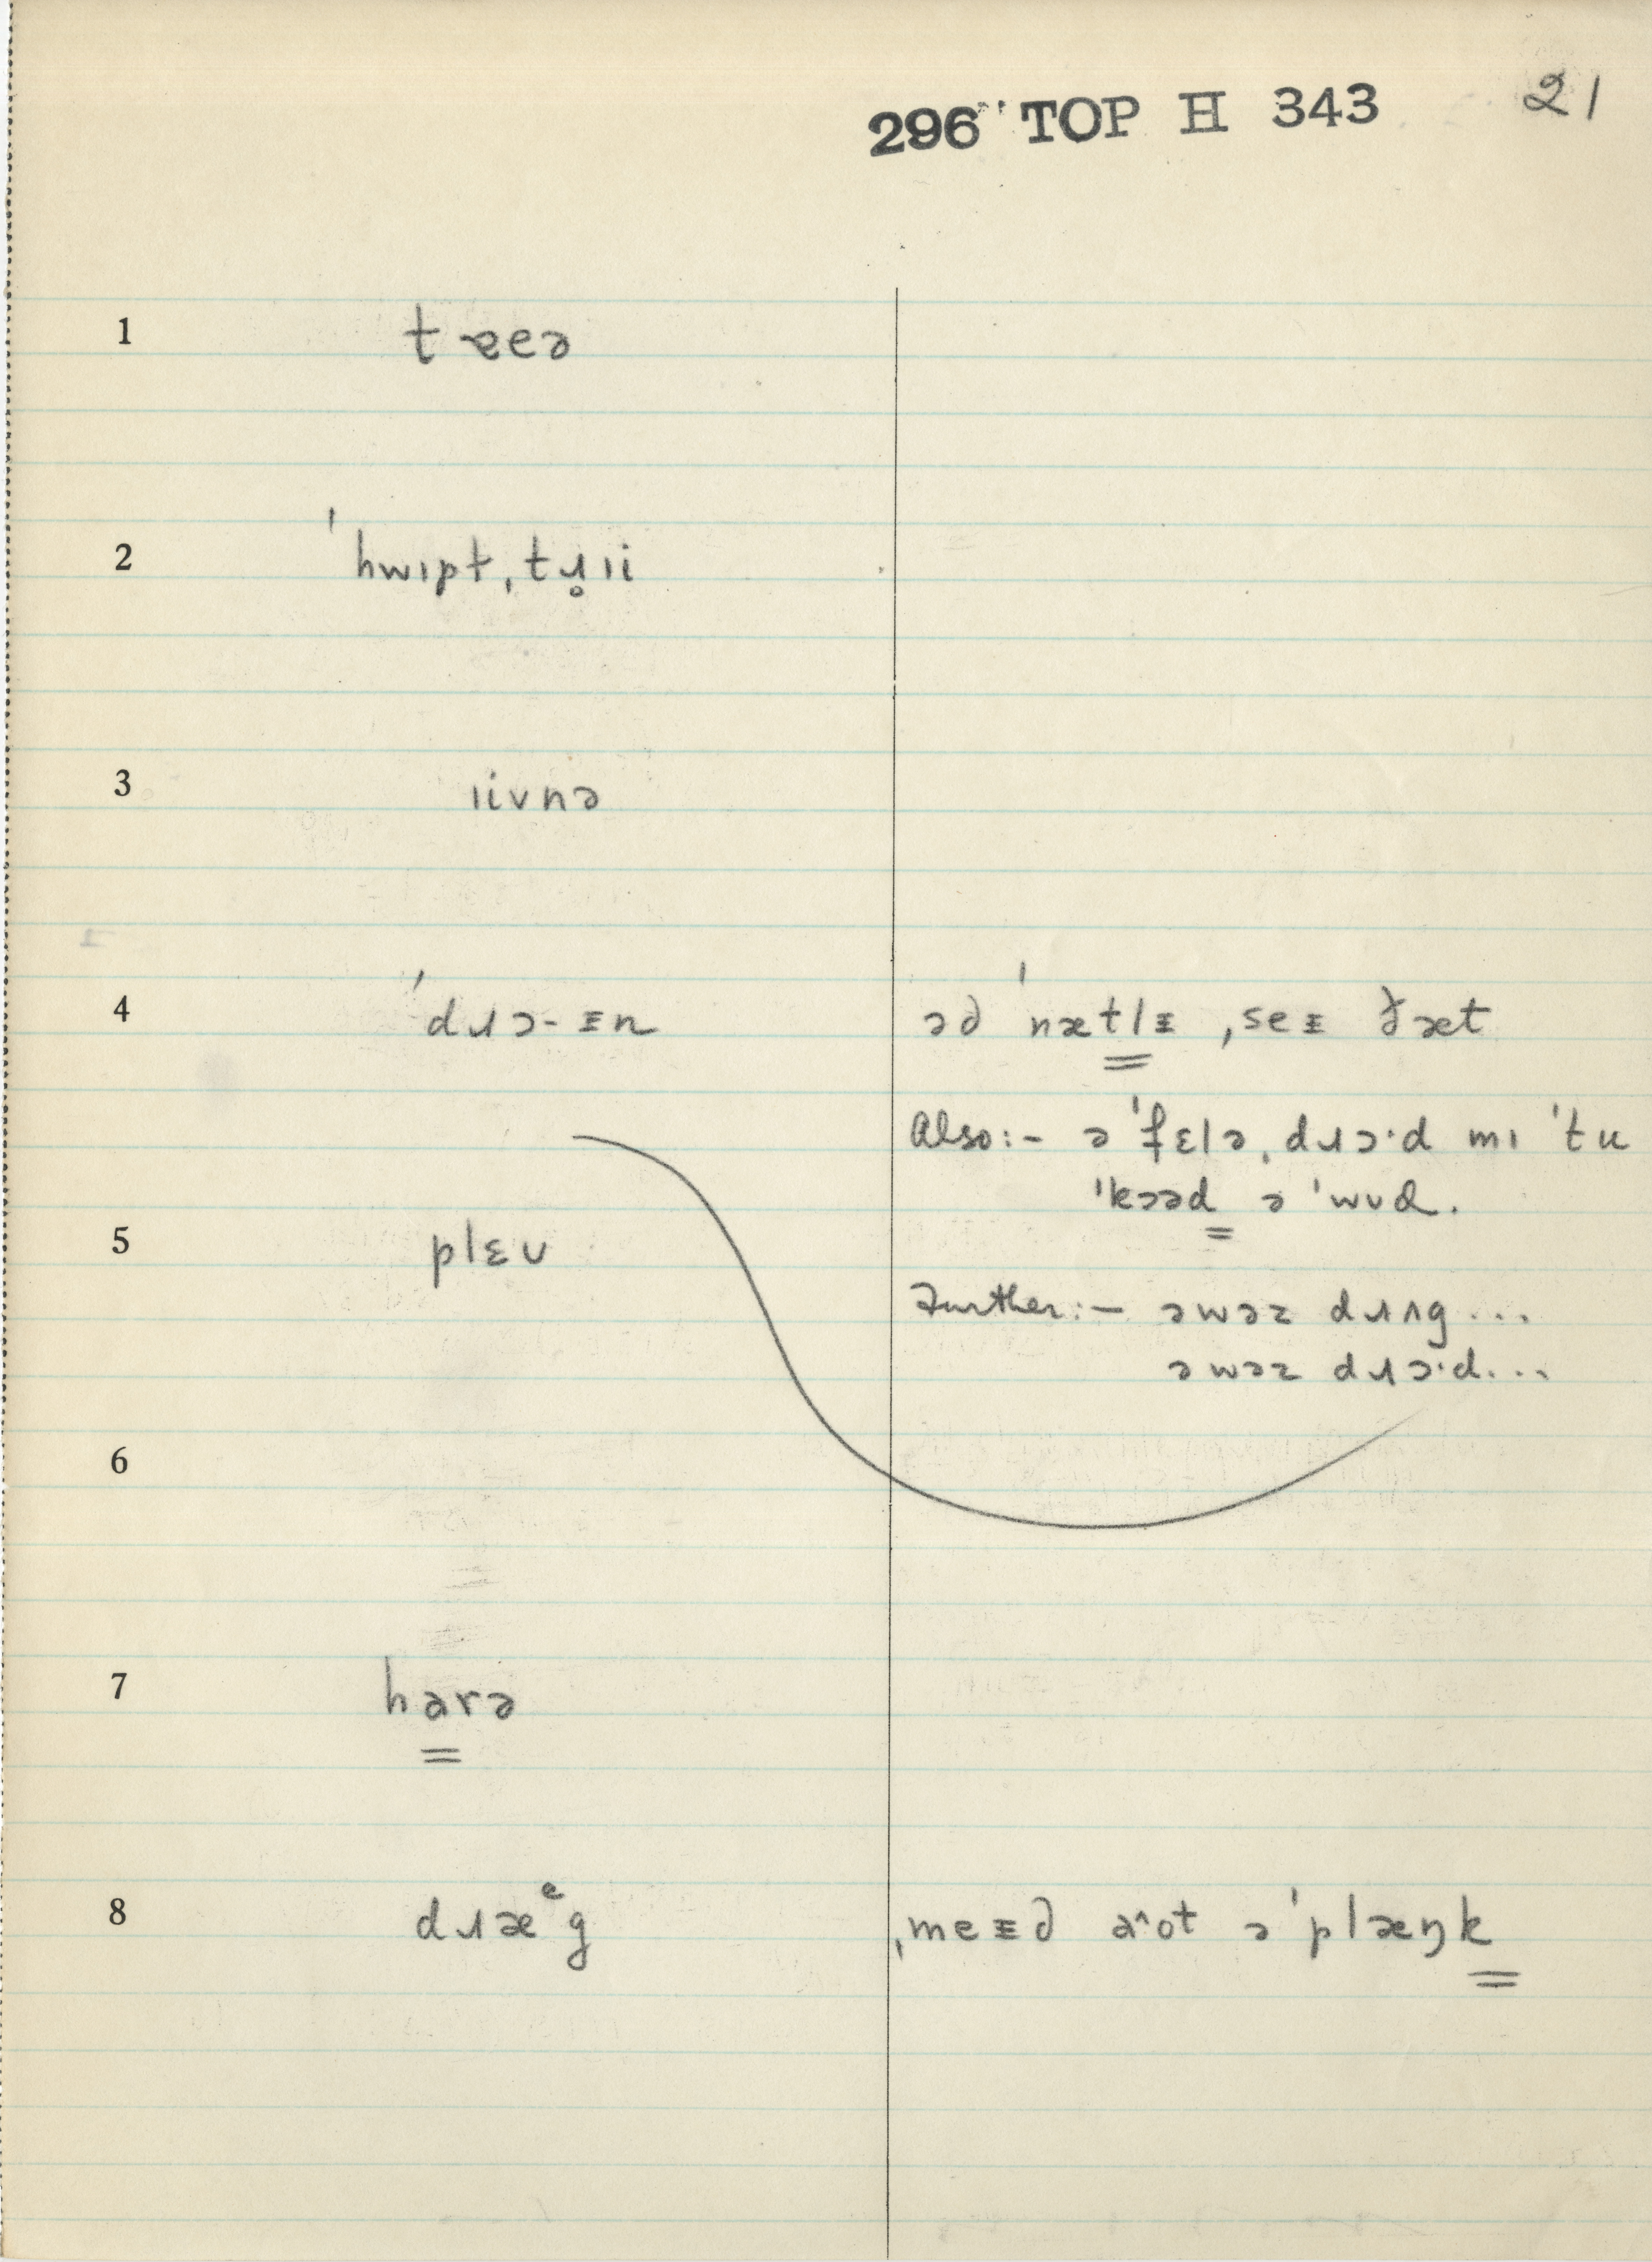 296 TOP H 343 21
1 tɐeə
2 ˈhwɪpt ˌtɹ̥ɪi
3 ɪivnə
4 ˈdɹɔ-ᵻn əd ˈnætlᵻ ˌseᵻ ðæt
Also:- ə ˈfɛlə ˌdɹɔ·d mɪ ˈtu
ˈkɔəd ə ˈwʊd.
5 plɛʊ
Further:- əwəz dɹʌg ...
əwəz dɹɔ·d...
6
7 harə
8 dɹæᵉg ˌmeᵻd aˆot ə ˈplæŋk